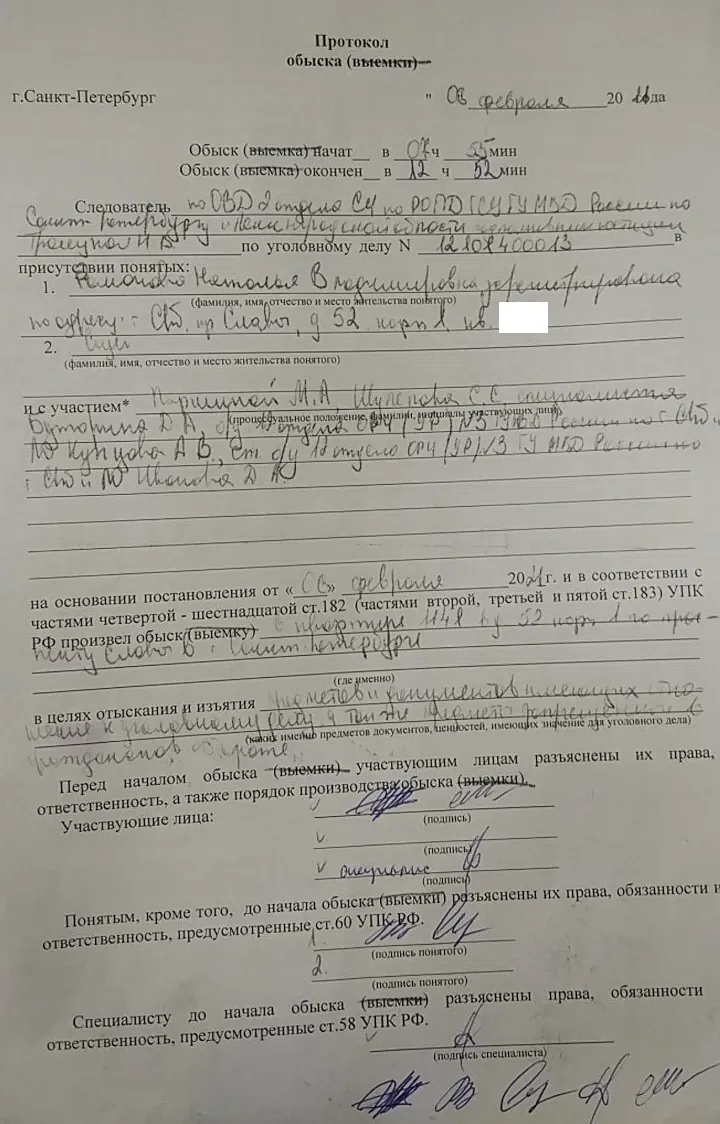 Протокол
обыска (выемки)
г.Санкт-Петербург " 08 февраля 20 да
Обыск (выемка) начат в 07 ч 55 мин
Обыск (выемка) окончен в 12 ч 52 мин
Следователь по ОВД 2 отдела СУ по РОПД ГСУ ГУ МВД России по
Санкт-Петербургу и Ленинградской области юстиции
по уголовному делу N 12108400013 в
присутствии понятых:
1. Наталья Владимировна зарегистрирована
(фамилия, имя, отчество и место жительства понятого)
по адресу: СПб, пр Славы, д 52 корп 1, кв.
2.
(фамилия, имя, отчество и место жительства понятого)
и с участием* М.А, С.С, специалиста
(процессуальное положение, фамилии, инициалы участвующих лиц)
Д А, о/у отдела ОРЧ (УР) ГУ МВД России по г СПб и
ЛО А В, ст о/у отдела ОРЧ (УР) ГУ МВД России по
г СПб и ЛО Иванова Д А.
на основании постановления от « » февраля 2021г. и в соответствии с
частями четвертой - шестнадцатой ст.182 (частями второй, третьей и пятой ст.183) УПК
РФ произвел обыск (выемку) в квартире д 52 корп 1 по про-
спекту Славы в г Санкт-Петербурге
(где именно)
в целях отыскания и изъятия предметов и документов имеющих отно-
шение к уголовному делу, а также предметы запрещенные в
(каких именно предметов документов, ценностей, имеющих значение для уголовного дела)
гражданском обороте.
Перед началом обыска (выемки) участвующим лицам разъяснены их права,
ответственность, а также порядок производства обыска (выемки).
Участвующие лица:
(подпись)
(подпись)
специалист
(подпись)
Понятым, кроме того, до начала обыска (выемки) разъяснены их права, обязанности и
ответственность, предусмотренные ст.60 УПК РФ.
1.
(подпись понятого)
2.
(подпись понятого)
Специалисту до начала обыска (выемки) разъяснены права, обязанности
ответственность, предусмотренные ст.58 УПК РФ.
(подпись специалиста)